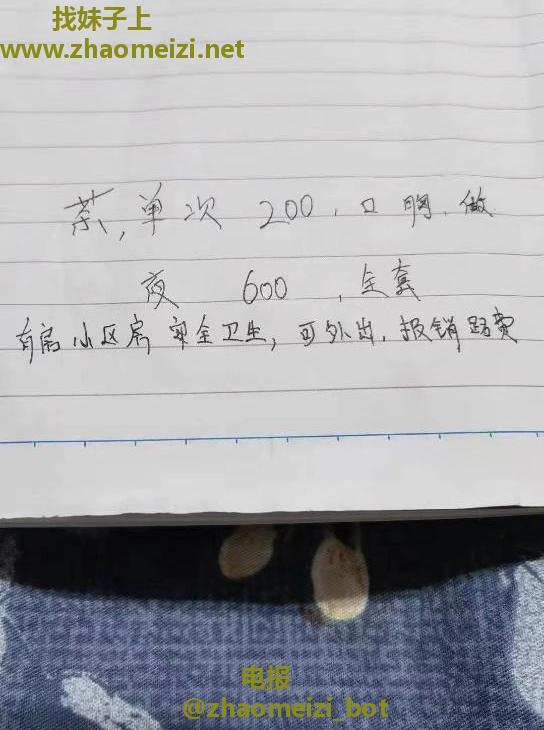 找妹子上
www.zhaomeizi.net
茶,单次 200,口 胸,做
夜 600,全套
有房小区房 安全卫生,可外出,报销路费
电报
@zhaomeizi_bot